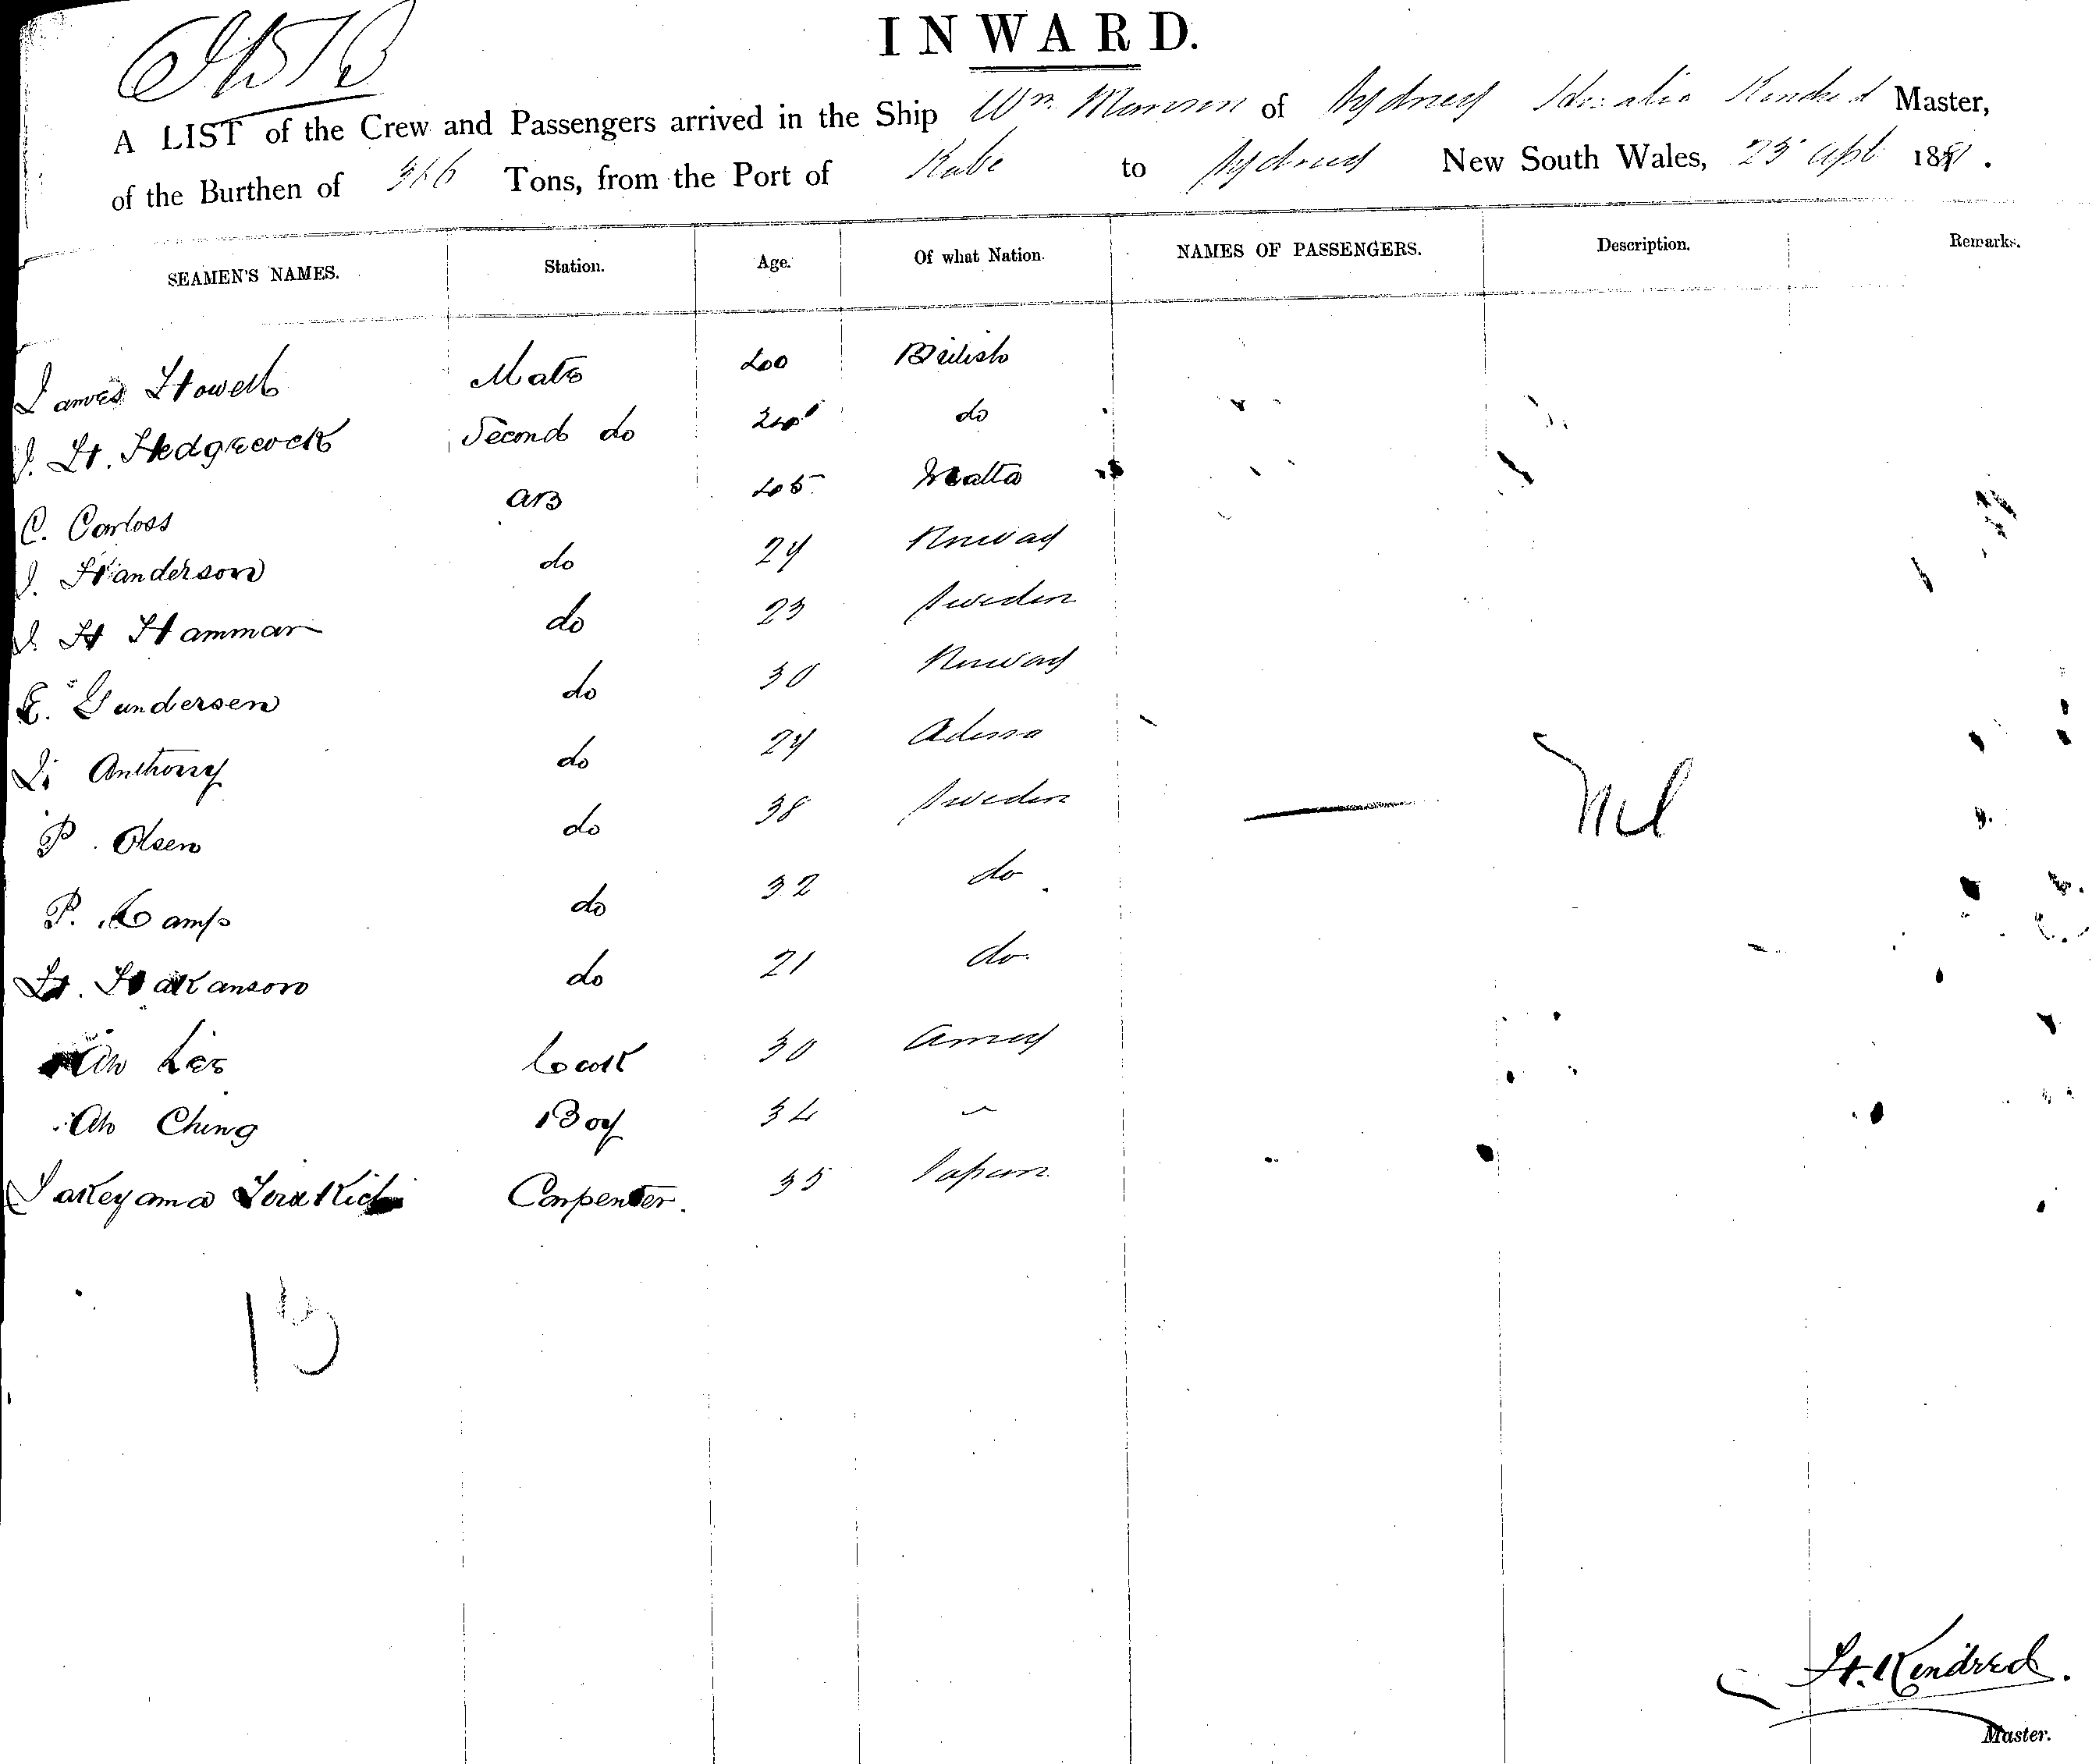 INWARD.
A LIST of the Crew and Passengers arrived in the Ship Wm Manson of Sydney Horatio Kendred Master,
of the Burthen of 366 Tons, from the Port of Kobe to Sydney New South Wales, 25 Apl 1881.
SEAMEN'S NAMES. Station. Age. Of what Nation. NAMES OF PASSENGERS. Description. Remarks.
James Howell Mate 40 British
J. H. Hedgecock Second do do
C. Carloss AB 45 Malta
J. Handerson do 24 Norway
J. H Hammar do 23 Sweden
E. Gundersen do 30 Norway
Anthony do 24
P. Olsen do 38 Sweden Nil
P. Kamp do 32 do
H. Hakanson do 21 do
Ah Lee Cook 30 Amoy
Ah Ching Boy 34
Takeyama Carpenter. 35 Japan
13
H. Kendred.
Master.